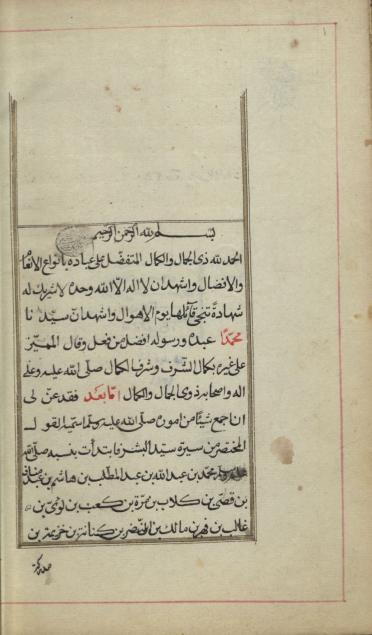 ١
بسم الله الرحمن الرحيم
الحمد لله ذى الجمال والكمال المتفضل على عباده بانواع الانعام
والافضال واشهد ان لا اله الا الله وحده لا شريك له
شهادة تنجى قائلها يوم الاهوال واشهد ان سيدنا
محمدا عبده ورسوله افضل من فعل وقال المميز
على غيره بكمال الشرف وشرف الكمال صلى الله عليه وعلى
اله واصحابه ذوى الجمال والكمال اما بعد فقد عن لى
ان اجمع شيئا من اموره صلى الله عليه وسلم القول
المختصر من سيرة سيد البشر فابتدأت بنسبه صلى الله
محمد بن عبد الله بن عبد المطلب بن هاشم بن عبد مناف
بن قصى بن كلاب بن مرة بن كعب بن لوى بن
غالب بن فهر بن مالك بن النضر بن كنانة بن خزيمة بن
مدركة